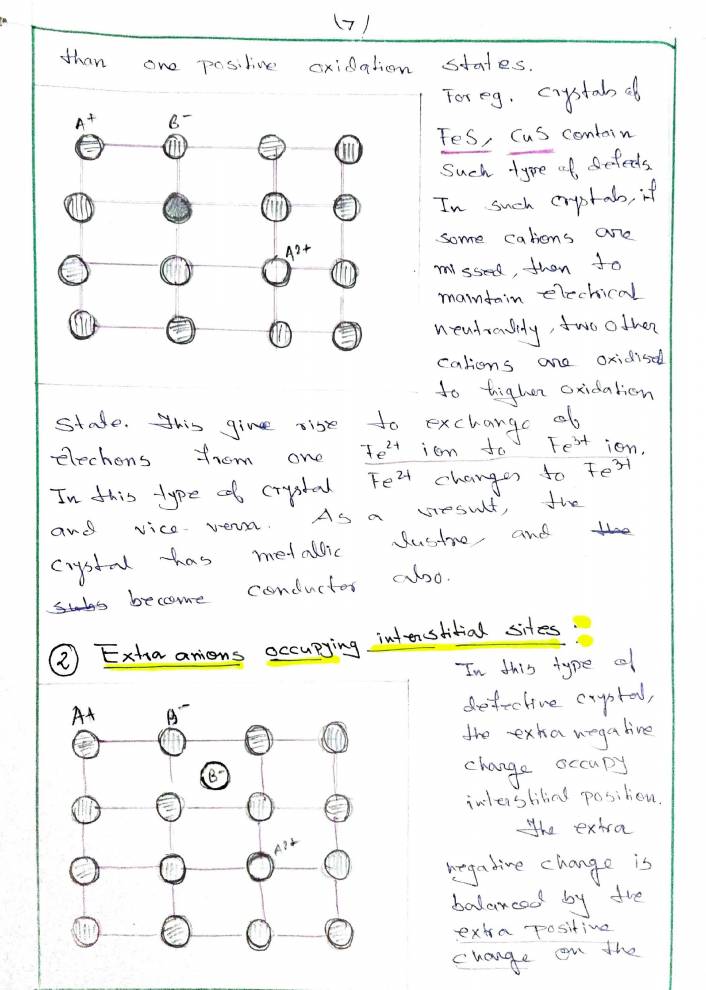 (7)
than one positive oxidation states.
For eg. crystals of
A+ B-
FeS, CuS contain
such type of defects.
In such crystals, if
some cations are
A2+
missed, then to
maintain electrical
neutrality, two other
cations are oxidised
to higher oxidation
state. This give rise to exchange of
elechons from one Fe2+ ion to Fe3+ ion.
In this type of crystal Fe2+ changes to Fe3+
and vice-versa. As a result, the
crystal has metallic lustre, and the
become conductor also.
(2) Extra anions occupying interstitial sites:
In this type of
A+ B-
defective crystal,
the extra negative
B-
charge occupy
interstitial position.
The extra
A2+
negative charge is
balanced by the
extra positive
charge on the